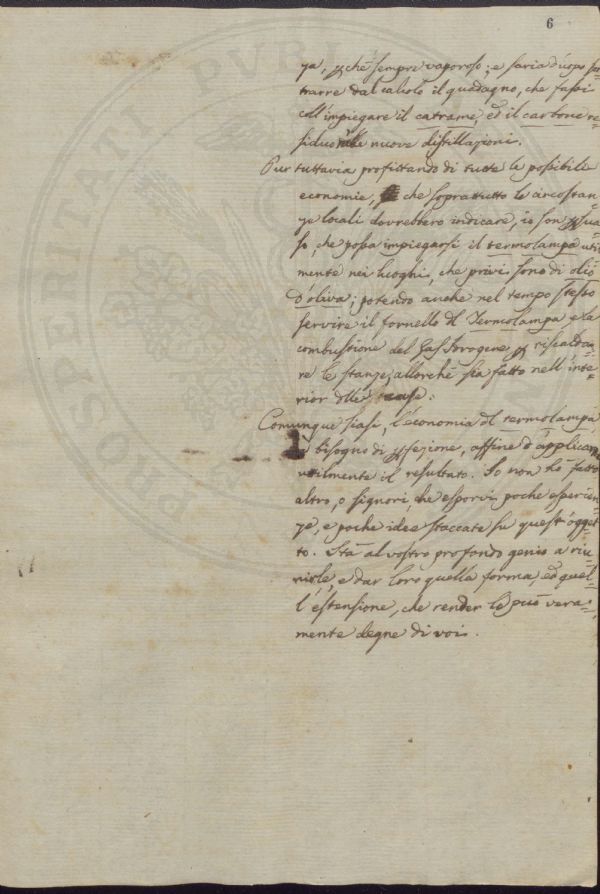 6
za, pchè sempre vaporoso; e saria d'uopo sot-
trarre dal calcolo il guadagno, che fassi
coll'impiegare il catrame, ed il carbone re-
siduo nelle nuove distillazioni.
Pur tuttavia profittando di tutte le possibili
economie, che soprattutto le circostan-
ze locali dovrebbero indicare, io son psua-
so, che possa impiegarsi il termolampa util-
mente nei luoghi, che privi sono di olio
d'oliva; potendo anche nel tempo stesso
servire il fornello dl Termolampa, e la
combustione del Gas Idrogene p riscalda-
re le stanze, allorchè sia fatto nell'inte-
rior dlle case.
Comunque siasi, l'economia dl termolampa
à bisogno di pfezione, affine d'applicar
utilmente il resultato. Io non ho fatto
altro, o signori, che esporvi poche esperien-
ze, e poche idee staccate su quest'ogget-
to. Stà al vostro profondo genio a riu-
nirle, e dar loro quella forma, ed quel-
l'estensione, che render le può vera-
mente degne di voi.
SPQR PUBLI